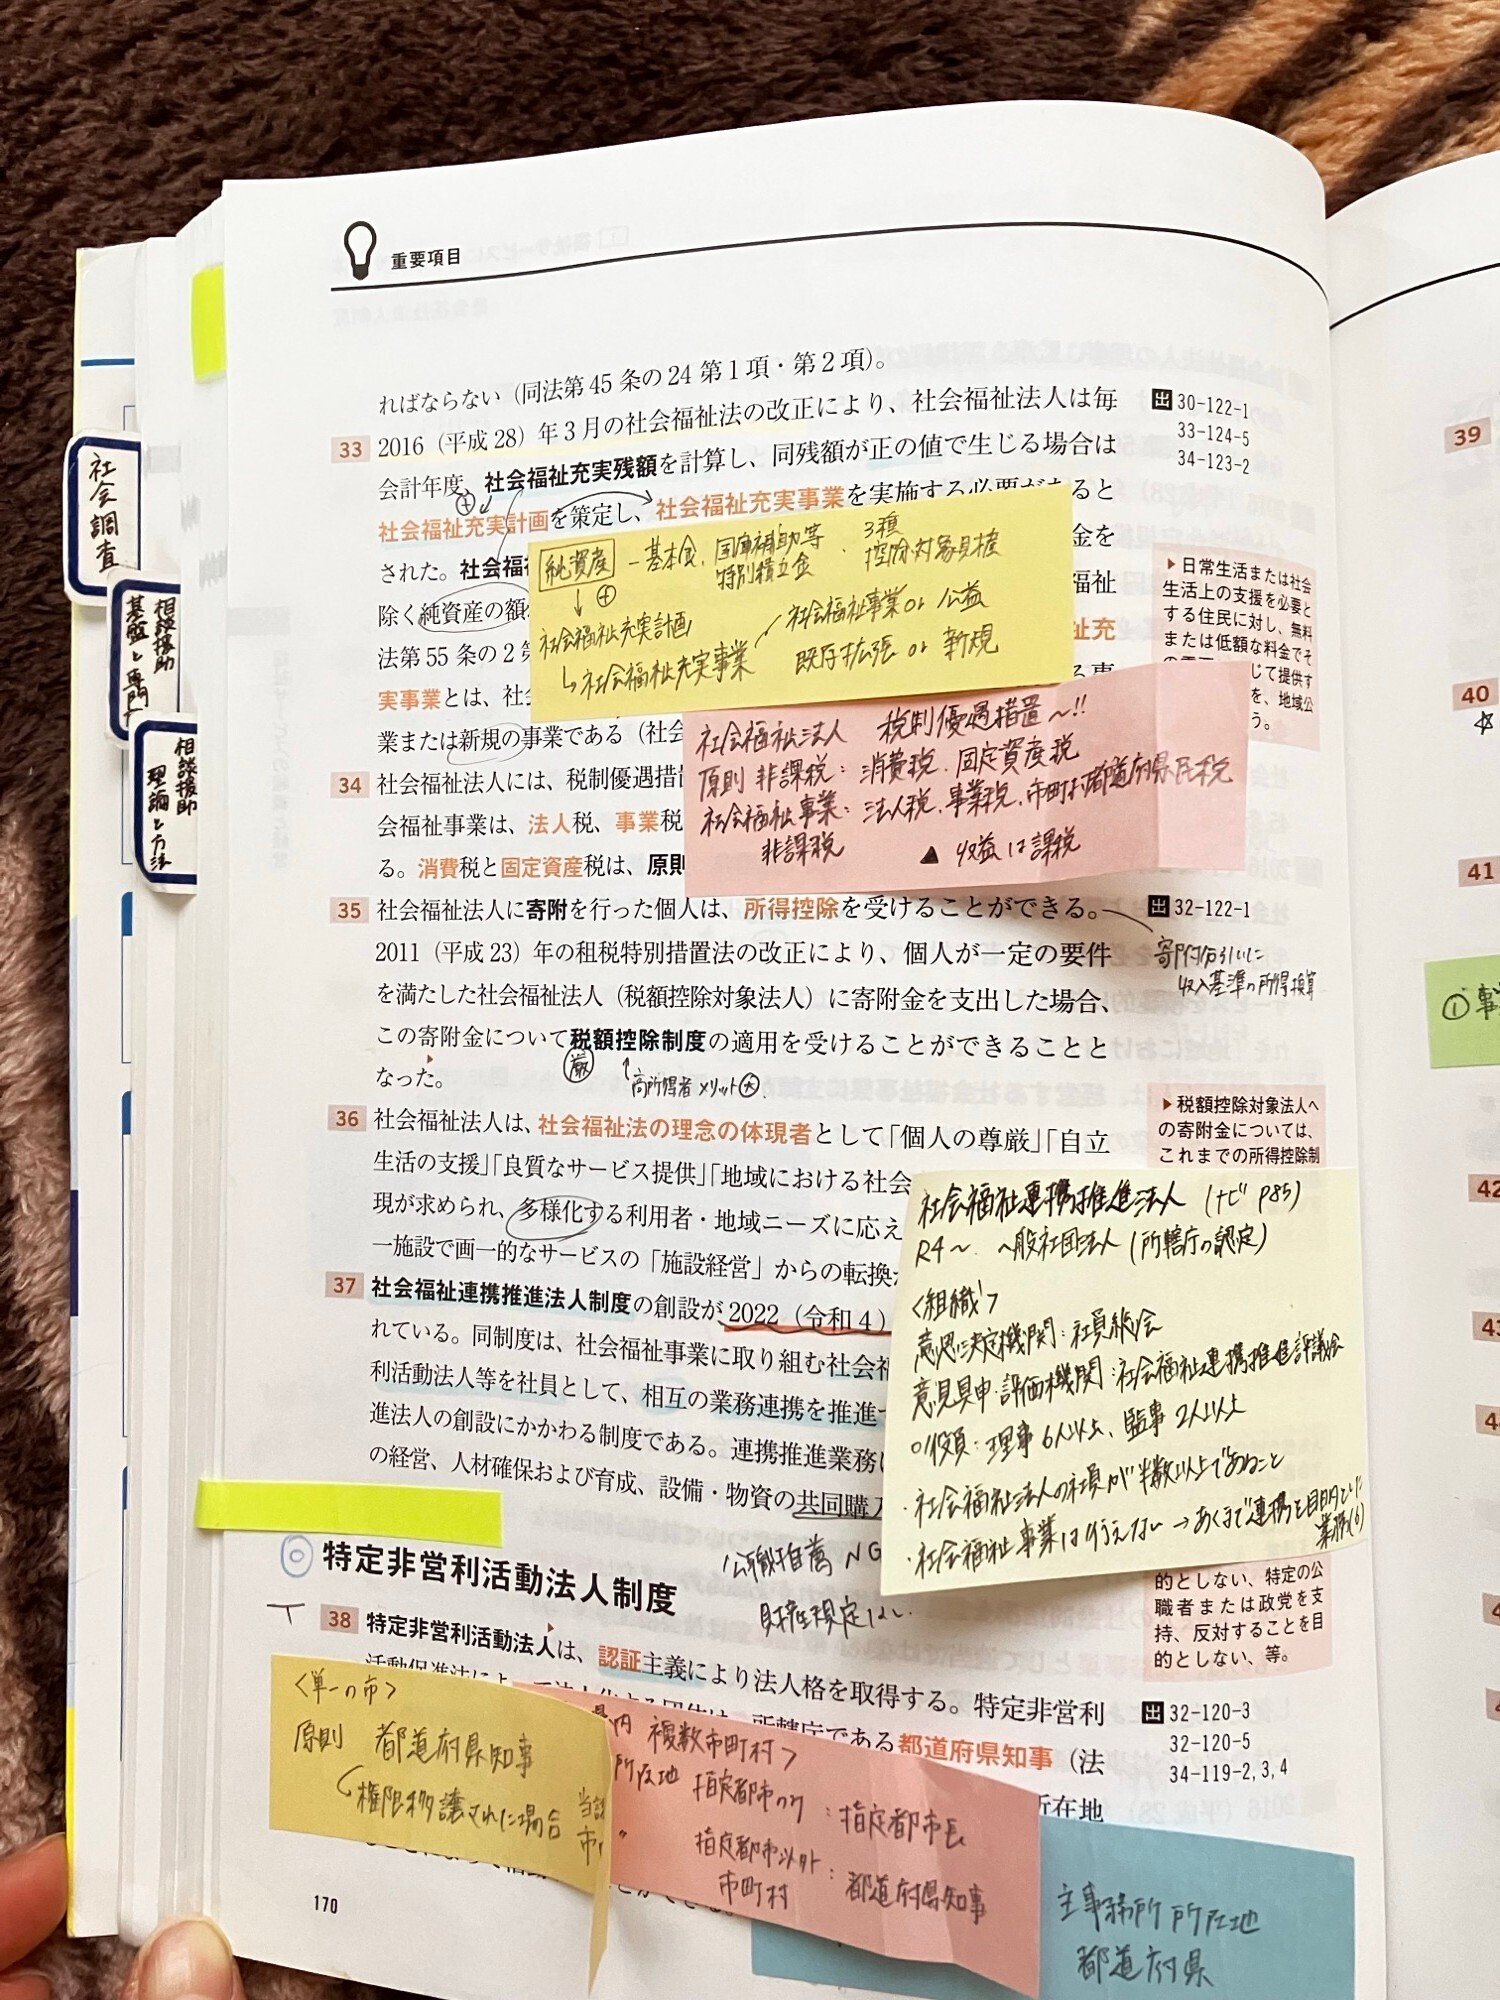 重要項目
社会調査
相談援助
基盤と専門
相談援助
理論と方法
ればならない（同法第45条の24第1項・第2項）。
33 2016（平成28）年3月の社会福祉法の改正により、社会福祉法人は毎
会計年度、社会福祉充実残額を計算し、同残額が正の値で生じる場合は
社会福祉充実計画を策定し、社会福祉充実事業を実施する必要があると
された。社会福
金を
除く純資産の額
福祉
法第55条の2第
祉充
実事業とは、社会
業または新規の事業である（社会
出 30-122-1
33-124-5
34-123-2
純資産 － 基本金、国庫補助等特別積立金、3種控除対象財産
↓⊕
社会福祉充実計画
↳社会福祉充実事業
社会福祉事業 or 公益
既存拡張 or 新規
▶日常生活または社会
生活上の支援を必要と
する住民に対し、無料
または低額な料金でそ
じて提供す
を、地域公
う。
社会福祉法人 税制優遇措置〜!!
原則非課税：消費税、固定資産税
社会福祉事業：法人税、事業税、市町村・都道府県民税
非課税 ▲収益は課税
34 社会福祉法人には、税制優遇措
会福祉事業は、法人税、事業税
る。消費税と固定資産税は、原則
35 社会福祉法人に寄附を行った個人は、所得控除を受けることができる。
2011（平成23）年の租税特別措置法の改正により、個人が一定の要件
を満たした社会福祉法人（税額控除対象法人）に寄附金を支出した場合、
この寄附金について税額控除制度の適用を受けることができることと
なった。
↑高所得者メリット大
出 32-122-1
▶税額控除対象法人へ
の寄附金については、
これまでの所得控除制
36 社会福祉法人は、社会福祉法の理念の体現者として「個人の尊厳」「自立
生活の支援」「良質なサービス提供」「地域における社会
現が求められ、多様化する利用者・地域ニーズに応え
一施設で画一的なサービスの「施設経営」からの転換
37 社会福祉連携推進法人制度の創設が2022（令和4）
れている。同制度は、社会福祉事業に取り組む社会福
利活動法人等を社員として、相互の業務連携を推進
進法人の創設にかかわる制度である。連携推進業務
の経営、人材確保および育成、設備・物資の共同購入
社会福祉連携推進法人（ナビP85）
R4〜 一般社団法人（所轄庁の認定）
<組織>
意思決定機関：社員総会
意見具申・評価機関：社会福祉連携推進評議会
○役員：理事6人以上、監事2人以上
・社会福祉法人の社員が半数以上であること
・社会福祉事業は行えない→あくまで連携を目的とした業務
公職推薦NG
財産規定なし
的としない、特定の公
職者または政党を支
持、反対することを目
的としない、等。
◎ 特定非営利活動法人制度
38 特定非営利活動法人は、認証主義により法人格を取得する。特定非営利
所轄庁である都道府県知事（法
所在地
出 32-120-3
32-120-5
34-119-2, 3, 4
<単一の市>
原則 都道府県知事
権限移譲された場合
内 複数市町村>
所在地
指定都市のみ：指定都市長
指定都市以外
市町村：都道府県知事
主事務所所在地
都道府県
170
39
40
41
42
①事